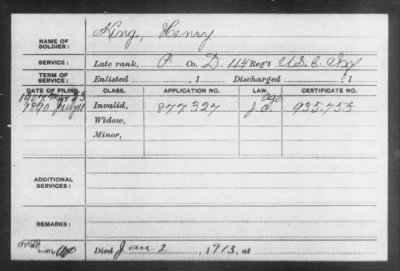 NAME OF SOLDIER: King, Henry
SERVICE: Late rank, P Co. D, 114 Reg't U.S.C. Inf
TERM OF SERVICE: Enlisted , 1 Discharged , 1
DATE OF FILING. CLASS. APPLICATION NO. LAW. CERTIFICATE NO.
1907 Mar 23 age
1890 July 11 Invalid, 877327 J.O. 935753
Widow,
Minor,
ADDITIONAL SERVICES:
REMARKS:
Died Jan 2 1913, at